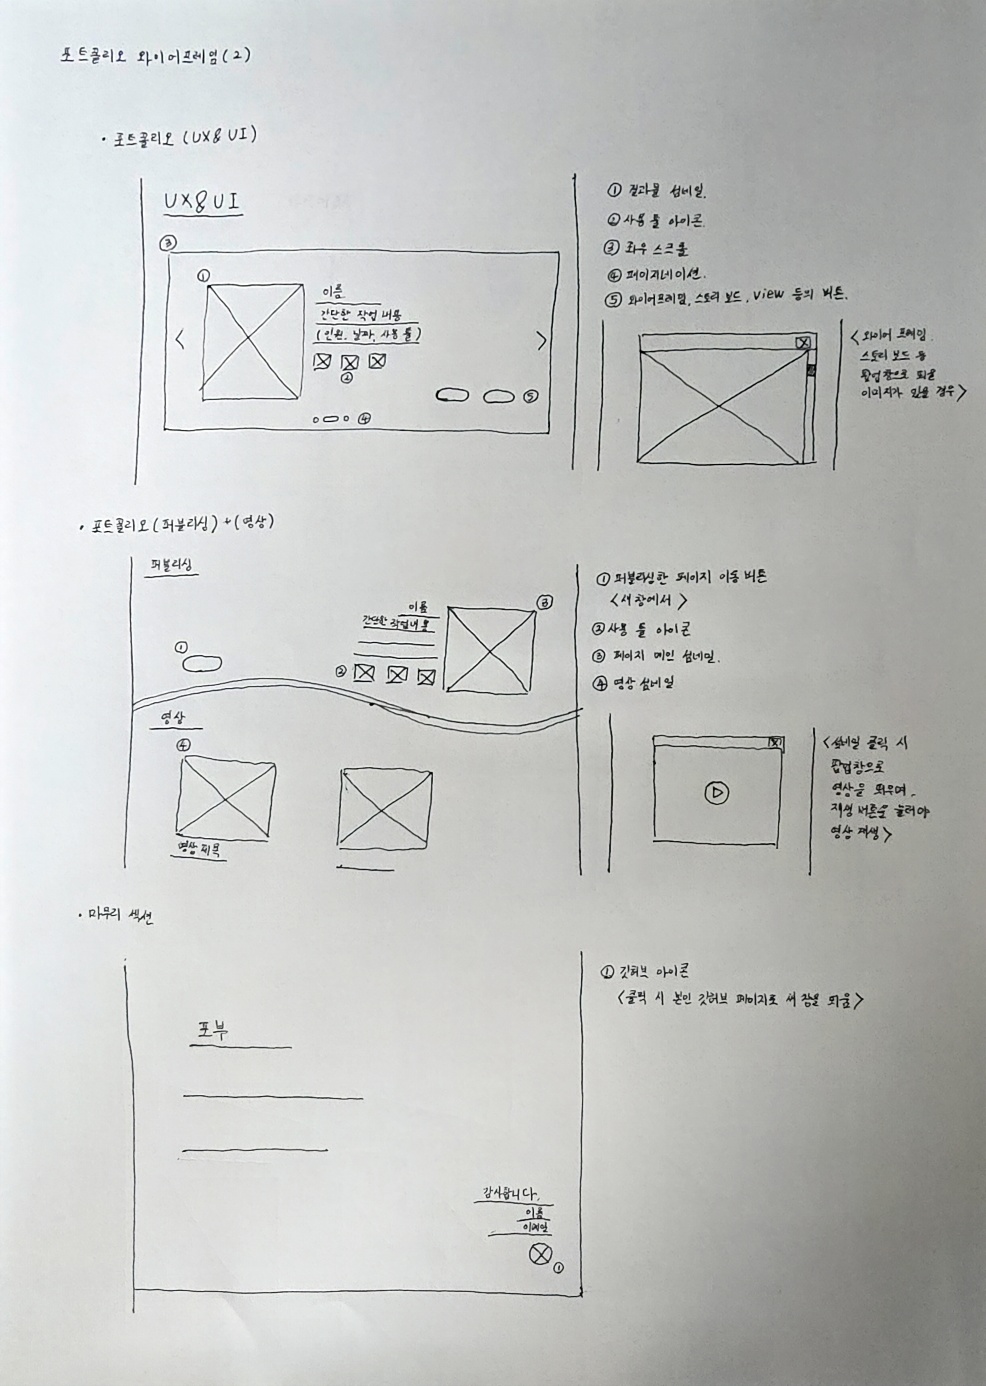 포트폴리오 와이어프레임(2)
· 포트폴리오 (UX&UI)
UX&UI
③
①
이름
간단한 작업 내용
(인원, 날짜, 사용 툴)
②
< >
⑤
④
① 결과물 섬네일.
② 사용 툴 아이콘.
③ 좌우 스크롤
④ 페이지네이션.
⑤ 와이어프레임, 스토리 보드, view 등의 버튼.
X
<와이어 프레임.
스토리 보드 등
팝업창으로 띄울
이미지가 있을 경우>
· 포트폴리오(퍼블리싱) + (영상)
퍼블리싱
③
이름
간단한 작업내용
①
②
영상
④
영상 제목
① 퍼블리싱한 페이지 이동 버튼
<새 창에서>
② 사용 툴 아이콘
③ 페이지 메인 섬네일.
④ 영상 섬네일
X
<섬네일 클릭 시
팝업창으로
영상을 띄우며,
재생 버튼을 눌러야
영상 재생>
· 마무리 섹션
포부
감사합니다.
이름
이메일
①
① 깃허브 아이콘
<클릭 시 본인 깃허브 페이지로 새 창을 띄움>